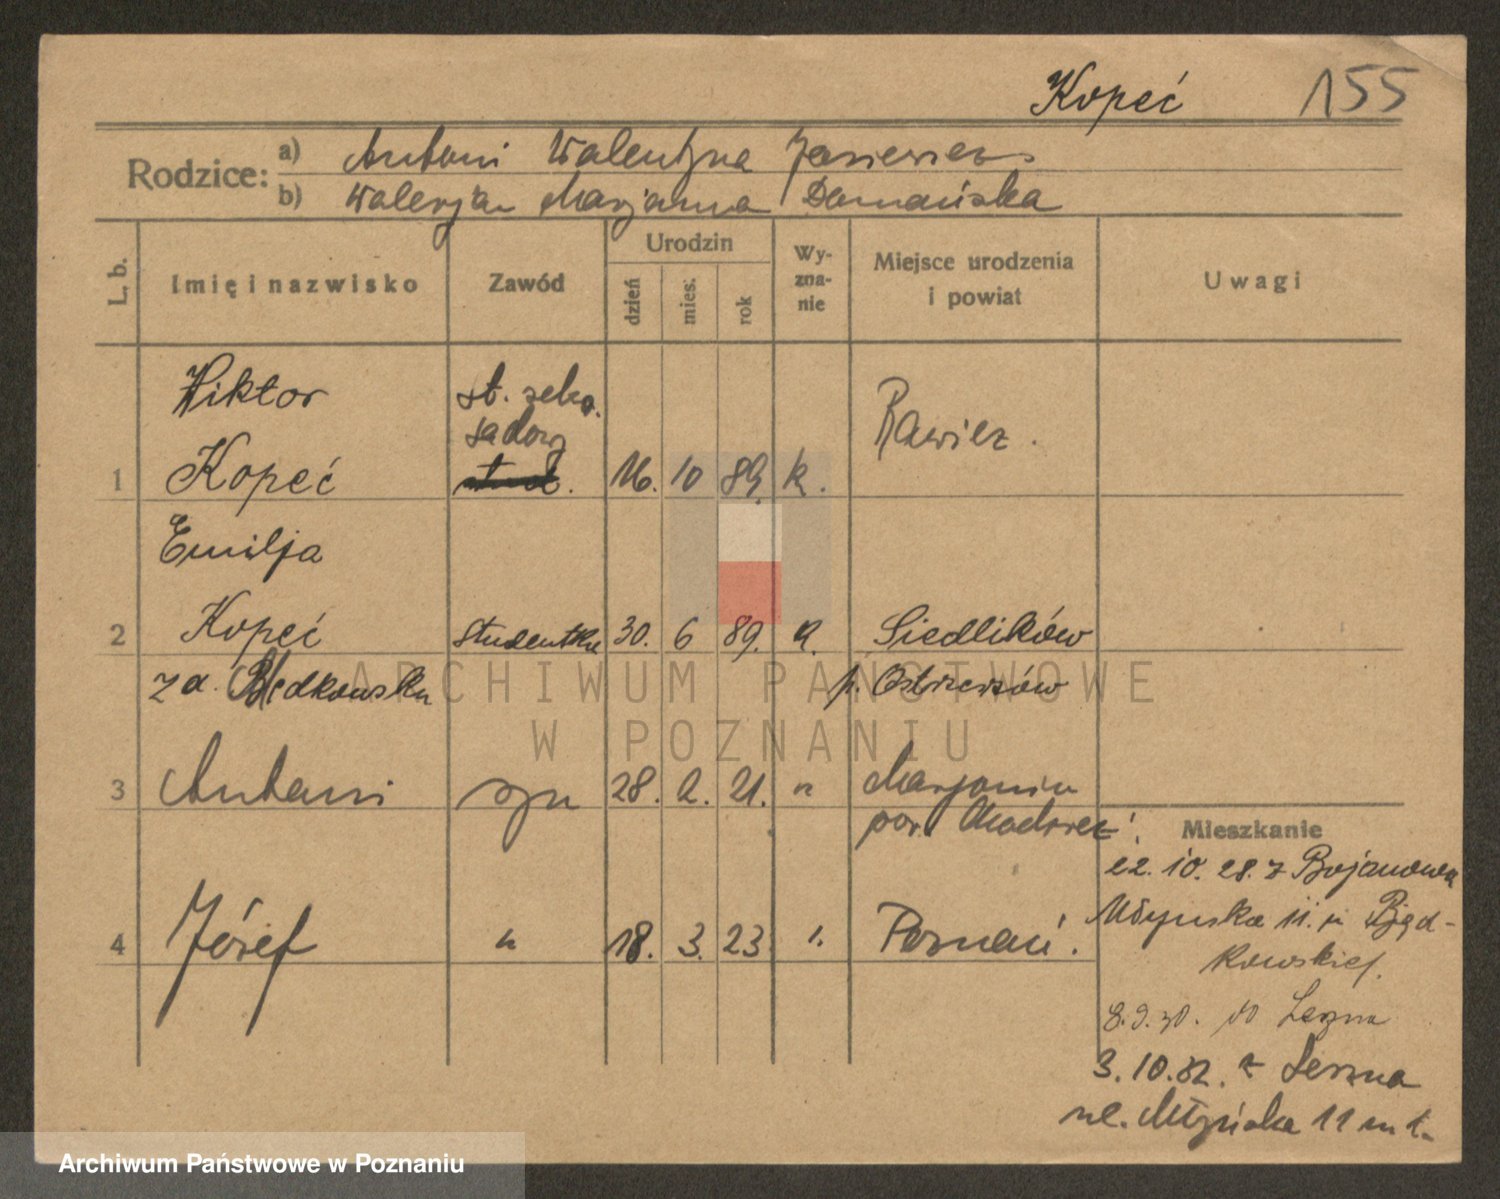 Kopeć 155
Rodzice: a) Antoni Walentyna Jasiewicz
b) Walerjan Marjanna Domańska
L. b.
Imię i nazwisko
Zawód
Urodzin
dzień
mies.
rok
Wy-
zna-
nie
Miejsce urodzenia
i powiat
Uwagi
Wiktor st. sekr.
sądowy Rawicz.
1 Kopeć 16. 10 89. k.
Emilja
2 Kopeć studentka 30. 6 89. Siedlików
z d. p. Ostrzeszów
3 Antoni syn 28. 2. 21. " Marjanin
pow.
4 Józef " 18. 3. 23 Poznań.
Mieszkanie
22. 10. 28. z Bojanowa
Młyńska 11. p. Bjąd-
kowskiej.
8.9.30. do Leszna
3.10.32. z Leszna
ul. Młyńska 11 m 1.
ARCHIWUM PAŃSTWOWE
W POZNANIU
Archiwum Państwowe w Poznaniu